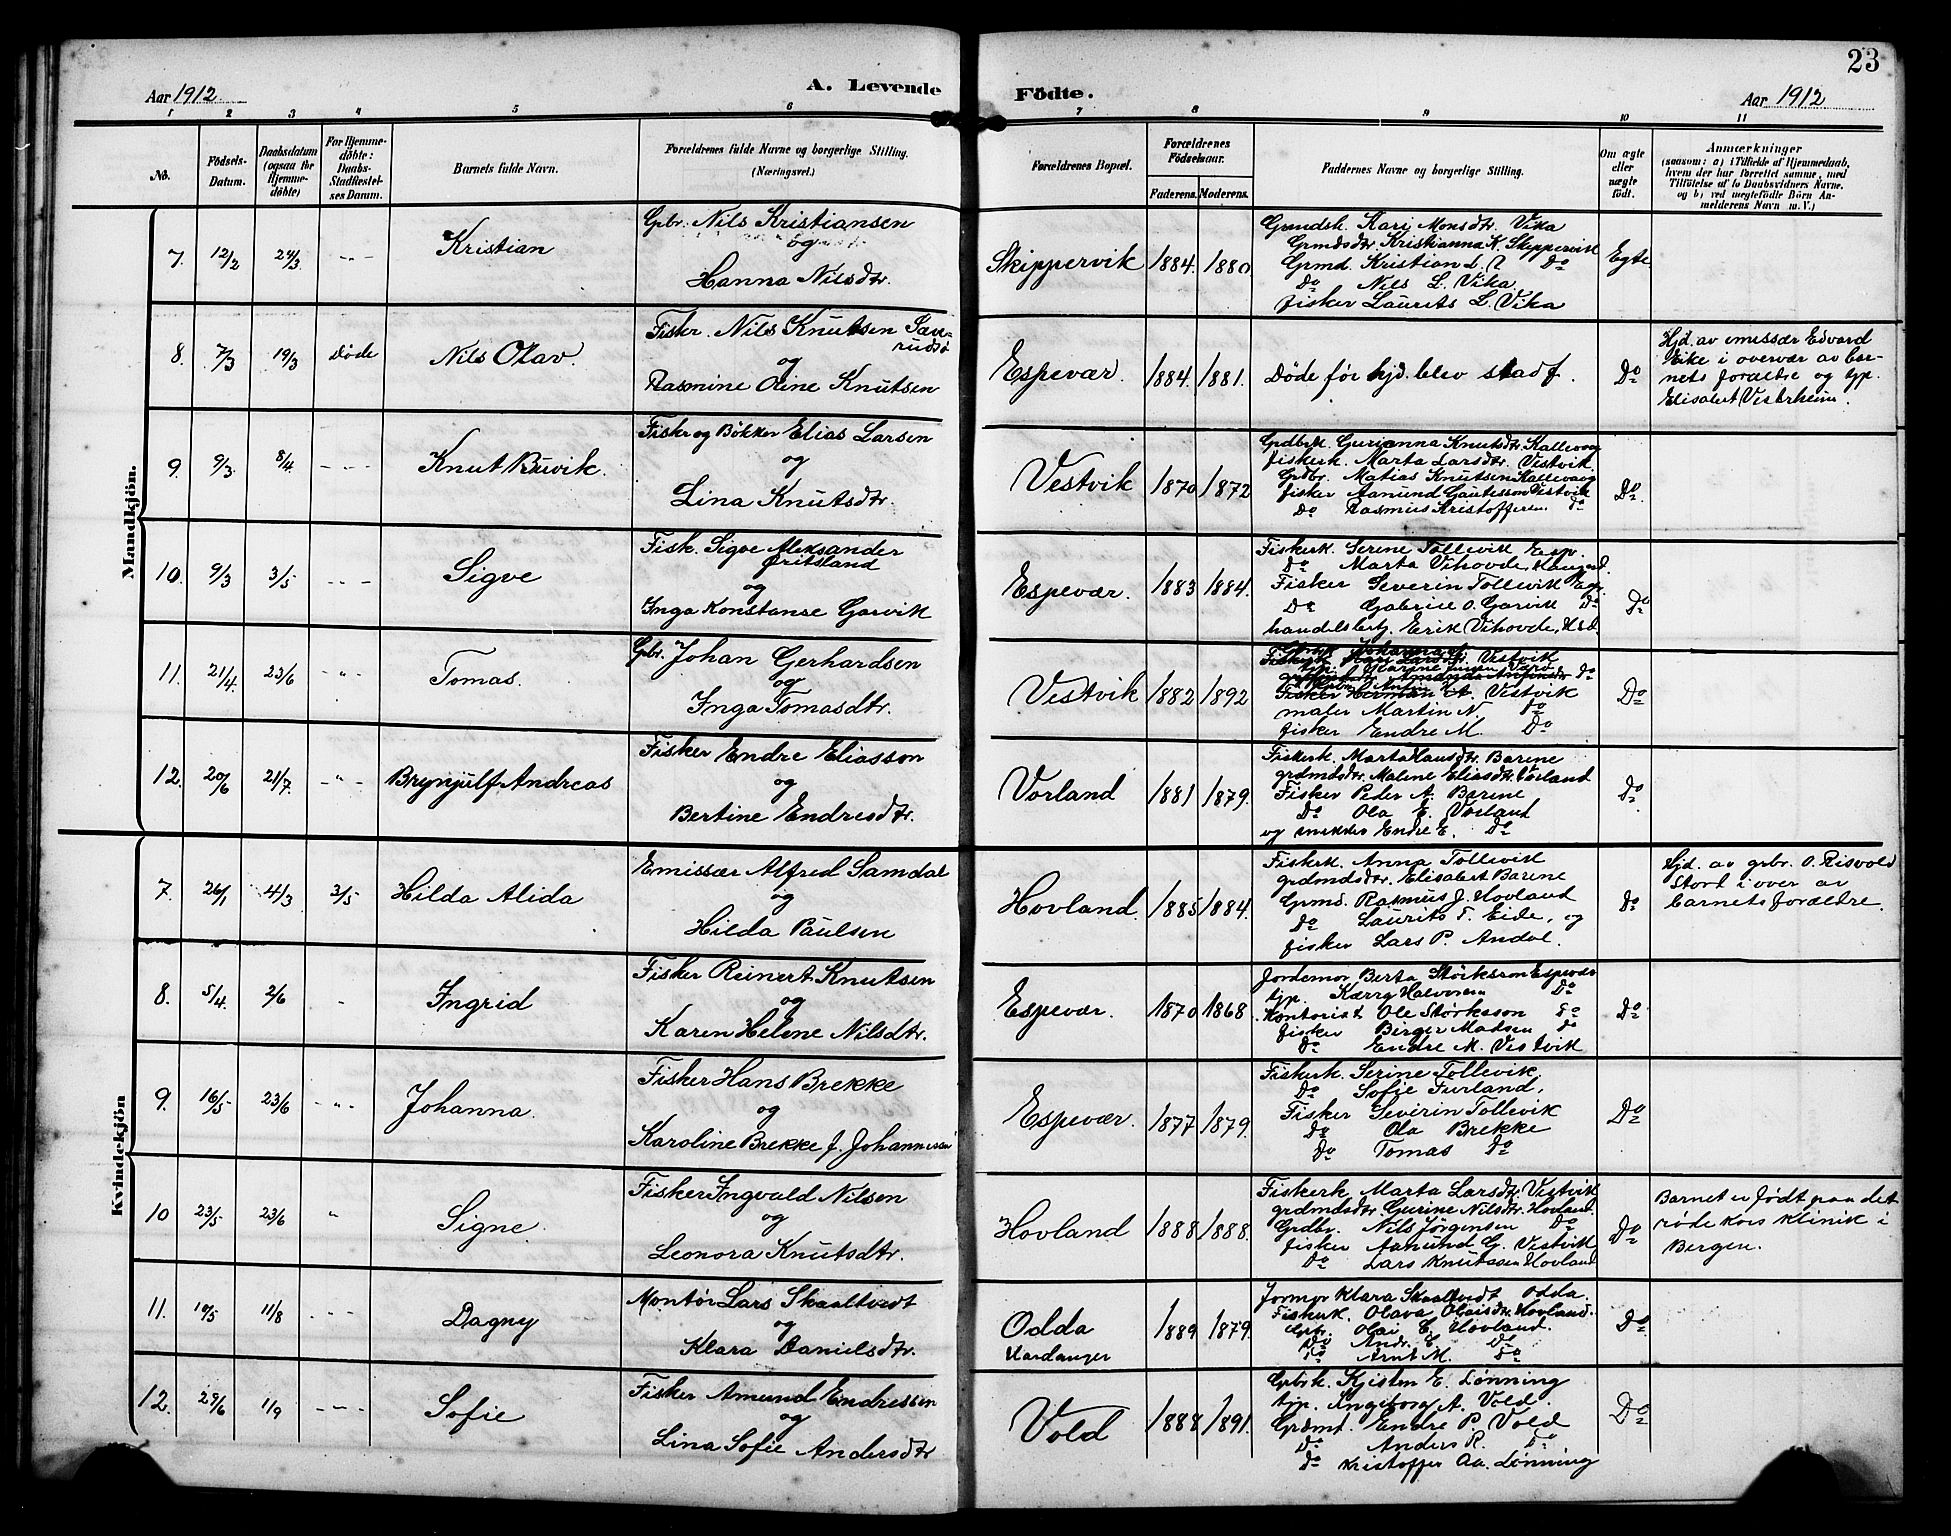 23
Aar 1912
A. Levende Födte.
Aar 1912
1 2 3 4 5 6 7 8 9 10 11
No.
Födsels-Datum.
Daabsdatum (ogsaa for Hjemme-döbte)
For Hjemme-döbte: Daabs-Stadfæstel-ses Datum.
Barnets fulde Navn.
Forældrenes fulde Navne og borgerlige Stilling. (Næringsvei.)
Forældrenes Bopæl.
Forældrenes Födselsaar.
Faderens. Moderens.
Faddernes Navne og borgerlige Stilling.
Om ægte eller uægte födt.
Anmærkninger
(saasom: a) i Tilfælde af Hjemmedaab,
hvem der har forrettet samme, med
Tilföielse af to Daabsvidners Navne,
og b) ved uægtefödte Börn An-
melderens Navn m. V.)
Mandkjön.
7. 12/2 24/3 -„- Kristian
Gbr. Nils Kristiansen
og
Hanna Nilsdtr.
Skippervik 1884. 1880.
Grmdsk. Kari Monsdtr. Vika
Grmdsdtr. Kristianna K. Skippervik
Grmd. Kristian L. Do
Do Nils L. Vika
fisker Laurits L. Vika
Egte
8. 7/3 19/3 Døde Nils Olav.
Fisker. Nils Knutsen
og
Rasmine Oline Knutsen
Espevær. 1884. 1881.
Døde før hjd. blev stadf.
Do
Hjd. av emissær Edvard
Eike i overvær av bar-
nets forældre og tjp.
Elisabert Vestrheim.
9. 9/3 8/4 -„- Knut Buvik.
Fiskr og Bøkker Elias Larsen
og
Lina Knutsdtr.
Vestvik 1870 1872
Grdbrk. Gurianna Knutsdtr. Kallevaag
fiskerk. Marta Larsdtr. Vestvik.
Grdbr. Matias Knutsen Kallevaag
fisker Aamund Gautesson Vestvik
Do Rasmus Kristoffersen do
Do
10. 9/3 3/5 -„- Sigve
Fisk. Sigve Aleksander
Fritsland
og
Inga Konstanse Garvik
Espevær. 1883 1884.
Fiskerk. Serine Tollevik Esp.
Do Marta Vihovde, Haugesd.
Fisker Severin Tollevik Esp.
Do Gabriel O. Garvik Do
handelsbetj. Erik Vihovde, Hsd.
Do
11. 21/4. 23/6 „ Tomas.
Gbr. Johan Gerhardsen
og
Inga Tomasdtr.
Vestvik 1882 1892
Vestvik
Do
Vestvik
maler Martin N. Do
fisker Endre M. Do
Do
12. 20/6 21/7. -„- Brynjulf Andreas
Fisker Endre Eliasson
og
Bertine Endresdtr.
Vorland 1881 1879.
Fiskerk. Marta Hansdtr. Barene
grdmdsdtr. Malene Eliasdtr. Vorland
Fisker Peder A. Barene
Do Ola E. Vorland
og snekker Endre E. Do
Do
Kvindekjön
7. 26/1 4/3 3/5 Hilda Alida
Emissær Alfred Samdal
og
Hilda Paulsen
Hovland. 1885 1884.
Fiskerk. Anna Tollevik
grdmdsdtr. Elisabert Barene
Grmd. Rasmus J. Hovland
Do Laurits T. Eide, og
fisker Lars P. Andal.
Do
Hjd. av grbr. O. Risvold
Stord i over av
barnets forældre.
8. 5/4. 2/6 „ Ingrid
Fisker Reinert Knutsen
og
Karen Helene Nilsdtr.
Espevær. 1870 1868
Jordemor Berta Størksson Espevær
tjp. Kærry Halvorsen Do
Kontorist Ole Størksson Do
fisker Birger Madsen do
Do Endre M. Vestvik
Do
9. 16/5 23/6 -„- Johanna.
Fisker Hans Brekke
og
Karoline Brekke f. Johannessen
Espevær. 1877 1879.
Fiskerk. Serine Tollevik.
Do Sofie Furland,
Fisker Severin Tollevik
Do Ola Brekke
Do Tomas Do
Do
10 23/5 23/6 „ Signe.
Fisker Ingvald Nilsen
og
Leonora Knutsdtr.
Hovland 1888 1888.
Fiskerk. Marta Larsdtr. Vestvik
grdmdsdtr. Gurine Nilsdtr. Hovland.
Grdbr. Nils Jörgensen Do
fisker Aamund G. Vestvik
Do Lars Knutsson Hovland
Do
Barnet er født paa det
røde kors klinik i
Bergen.
11. 19/5 11/8 -„- Dagny
Montör Lars Skaaltvedt
og
Klara Danielsdtr.
Odda
Hardanger
1889 1879.
Jormor Klara Skaaltvedt Odda.
Fiskerk. Olava Olaisdtr. Hovland.
Grbr. Olai E. Hovland.
Do Andr. E. Do
Do Arnt M. Do
Do
12. 29/6 1/9 -„- Sofie
Fisker Amund Endressen
og
Lina Sofie Andersdtr
Vold 1888 1891.
Grbrk. Kjisten E. Lønning
tjp. Ingeborg A. Vold.
Grdmt. Endre P. Vold
Do Anders R. Do
Do Kristoffer Aa. Lønning
Do